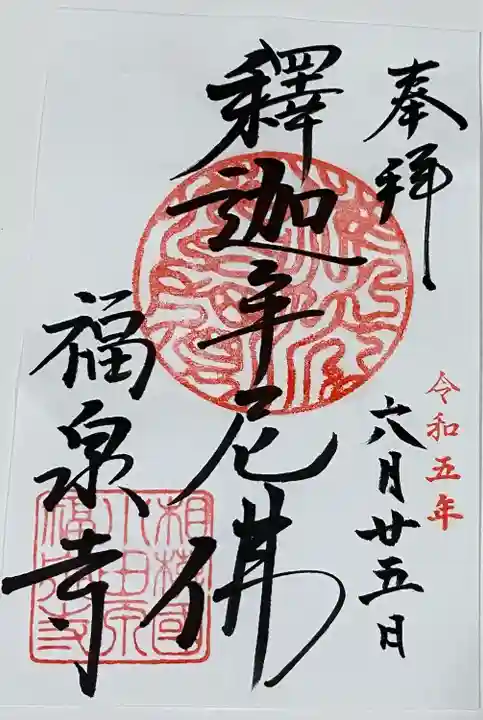 奉拝
令和五年
六月廿五日
釋迦牟尼佛
福泉寺
相模國
小田原
福泉寺